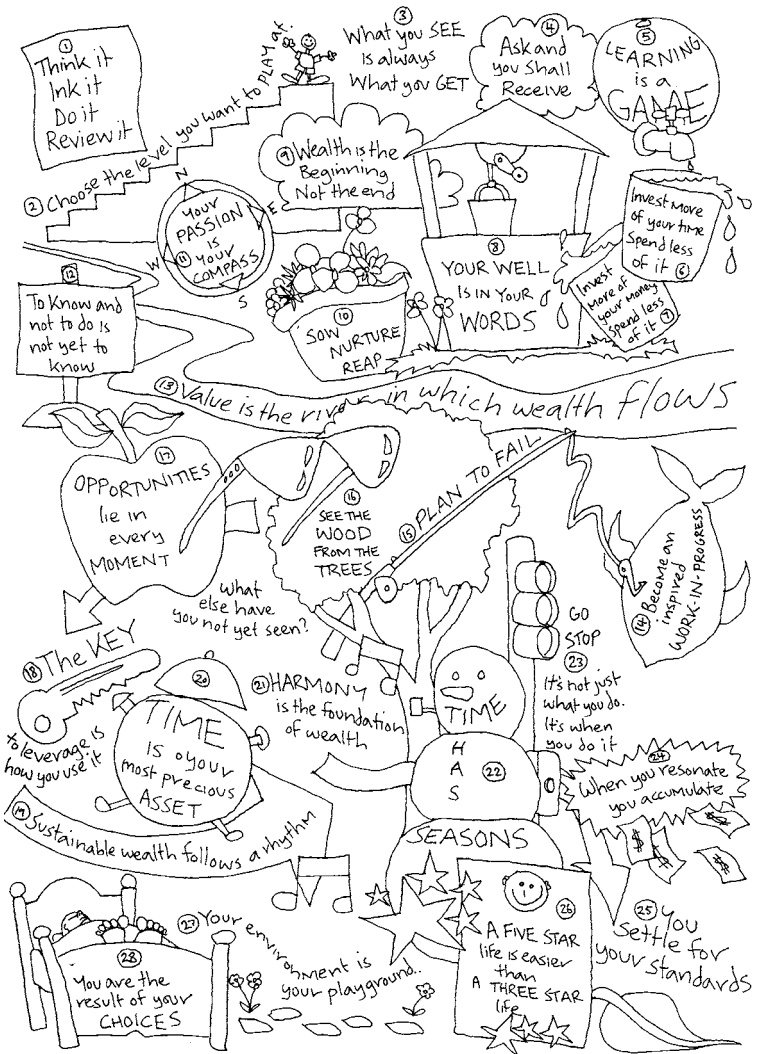 1
Think it
Ink it
Do it
Review it
2 Choose the level you want to PLAY at.
3
What you SEE
is always
What you GET
4
Ask and
you Shall
Receive
5
LEARNING
is a
GAME
Invest More
of your time
Spend less
of it 6
Invest
More of
your Money
Spend less
of it 7
8
YOUR WELL
IS IN YOUR
WORDS
9 Wealth is the
Beginning
Not the end
10
SOW
NURTURE
REAP
N
E
S
W
YOUR
PASSION
is
11 YOUR
COMPASS
12
To Know and
not to do is
not yet to
know
13 Value is the river in which wealth flows
14 Become an
inspired
WORK-IN-PROGRESS
15 PLAN TO FAIL
16
SEE THE
WOOD
FROM THE
TREES
17
OPPORTUNITIES
lie in
every
MOMENT
What
else have
you not yet seen?
18 The KEY
to leverage is
how you use it
19 Sustainable wealth follows a rhythm
20
TIME
IS your
most precious
ASSET
21 HARMONY
is the foundation
of wealth
TIME
H
A
S
22
SEASONS
GO
STOP
23
It's not just
what you do.
It's when
you do it
24
When you resonate
you accumulate
$
$
$
$
25 You
Settle for
your standards
26
A FIVE STAR
life is easier
than
A THREE STAR
life
27 Your environment is
your playground..
28
You are the
result of your
CHOICES